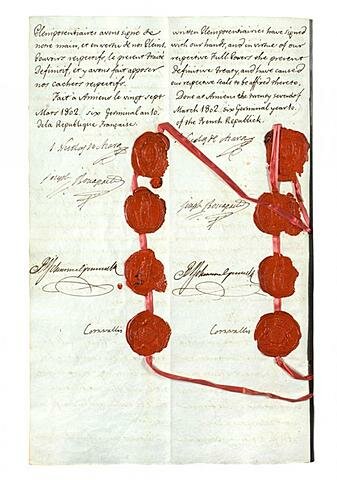 Plenipotentiaires avons signé de
notre main, et en vertu de nos Pleins
Pouvoirs respectifs, le présent Traité
Definitif, et y avons fait apposer
nos cachets respectifs.
Fait à Amiens le vingt sept
Mars 1802. six Germinal an 10.
de la Republique Française.
Joseph Bonaparte
Cornwallis
written Plenipotentiaries have signed
with our hands, and in virtue of our
respective Full Powers the present
Definitive Treaty, and have caused
our respective seals to be affixed thereto.
Done at Amiens the twenty seventh of
March 1802. six Germinal year 10.
of the French Republick.
Joseph Bonaparte
Cornwallis